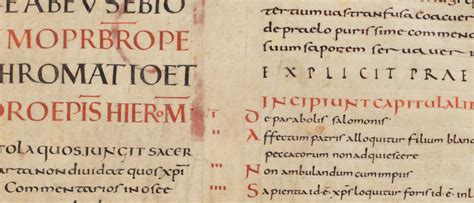 E ABEVSEBIO
MO PRBRO PE
HROMATIO ET
RO EPIS HIERoM
TOLA QUOS JUNGIT SACER
ARTA NON DIVIDAT QUOS XPI
Commentarios in osee
tertium vas transfusa coacue
de praelo purissime commenc
suum saporem servaver
EXPLICIT PRAE
INCIPIUNT CAPITULA LI
De parabolis salomonis
Affectum patris alloquitur filium blanc
peccatorum non adquiescere
Non ambulandum cum impiis
Sapientia id·e· xps loquitur foris id·e· in